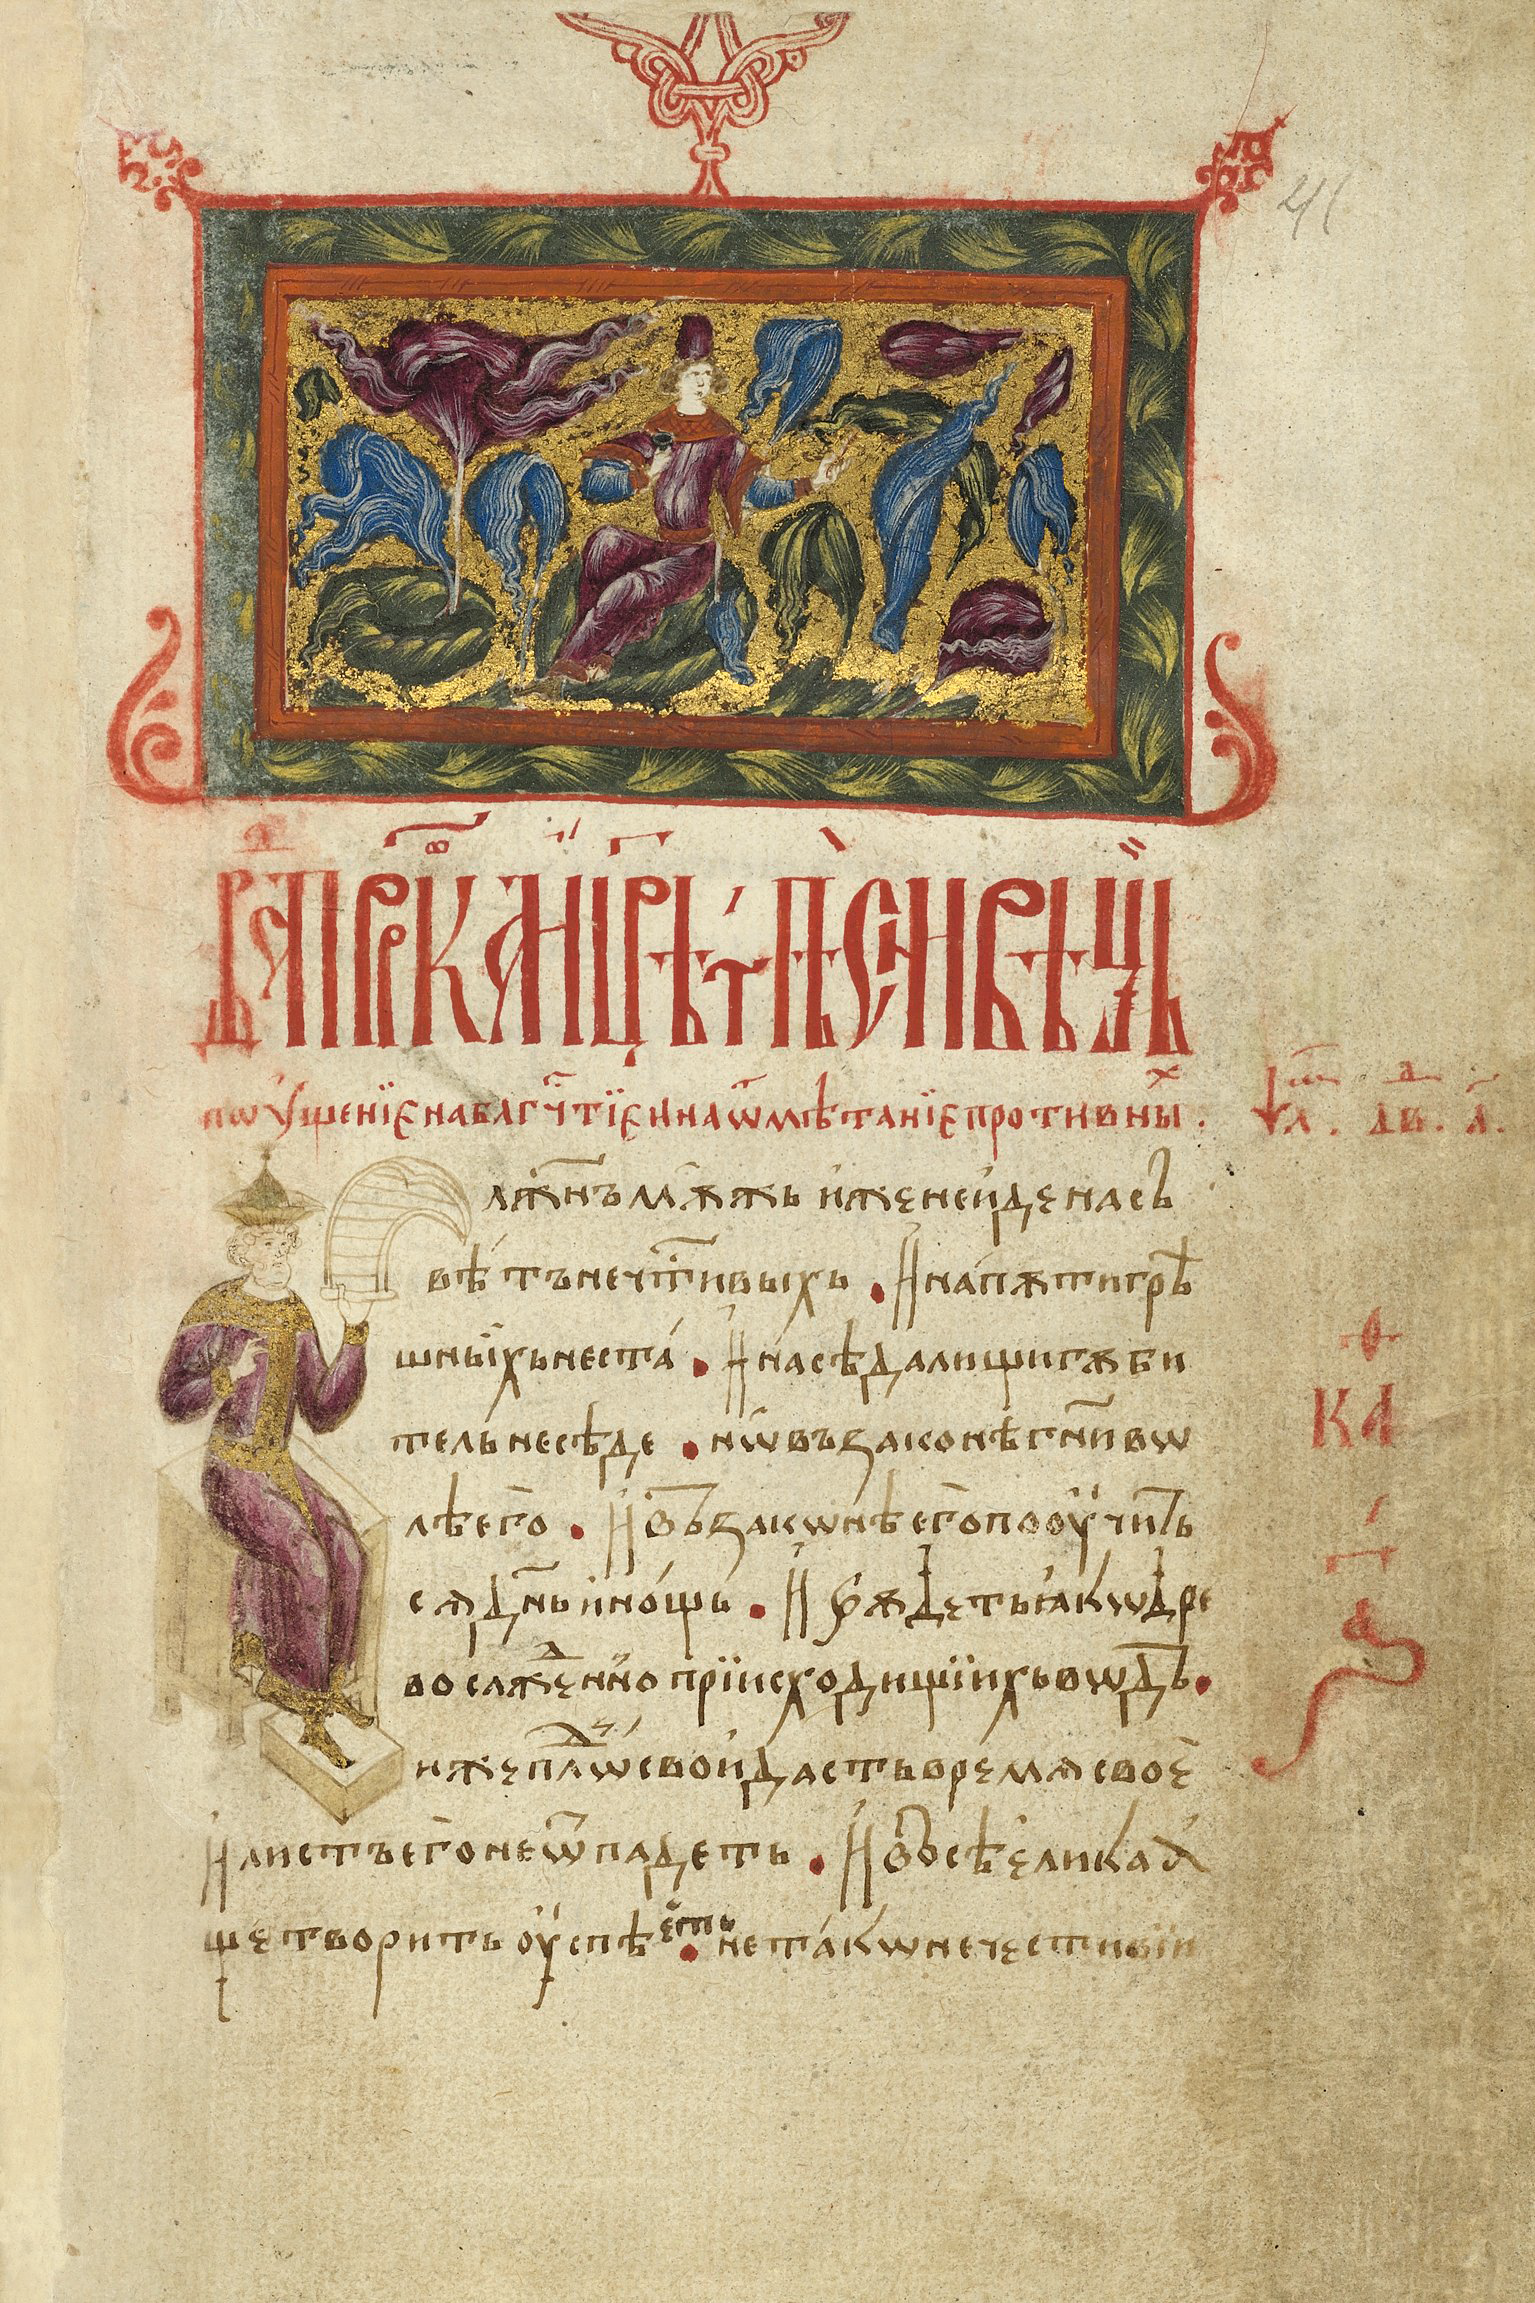 41
Дв҃а прⷪ҇рка и цр҃ѧ пѣсн въ
поꙋченїе на блгⷭ҇чтїе и на ѿмѣтанїе противныⷯ.
лж҃нъ мѫжь иже не иде на съ
вѣтъ нечⷭ҇тивыхъ . И на пѫти грѣ
шныихъ не ста . И на сѣдалищи гѫби
тель не сѣде . нѡ въ законѣ гн҃и вѡ
лѣ ег҃о . И въ закѡнѣ ег҃о поѹчитъ
сѧ дн҃ь и нощь . И бѫдеть ꙗкѡ дре
во сажденно при исходищїихъ вѡдъ.
иже плⷪ҇дъ свои дасть врѣмѧ свое
И листъ его не ѿпадеть . И всѣ елика а
ще творить ѹспѣеть . не такѡ нечестивїи
ка